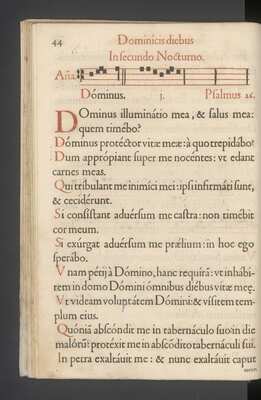 44
Dominicis diebus
In secundo Nocturno.
Aña.
Dóminus. j. Psalmus 26.
DOminus illuminátio mea, & salus mea:
quem timébo?
Dóminus protéctor vitæ meæ: à quo trepidábo?
Dum apprópiant super me nocéntes: vt edant
carnes meas.
Qui tríbulant me inimíci mei: ipsi infirmáti sunt,
& cecidérunt.
Si consístant aduérsum me castra: non timébit
cor meum.
Si exúrgat aduérsum me prælium: in hoc ego
sperábo.
Vnam pétij à Dómino, hanc requirã: vt inhábi-
tem in domo Dómini ómnibus diébus vitæ meę.
Vt vídeam voluptátem Dómini: & vísitem tem-
plum eius.
Quóniã abscóndit me in tabernáculo suo: in die
malórũ: protéxit me in abscóndito tabernáculi sui.
In petra exaltáuit me: & nunc exaltáuit caput